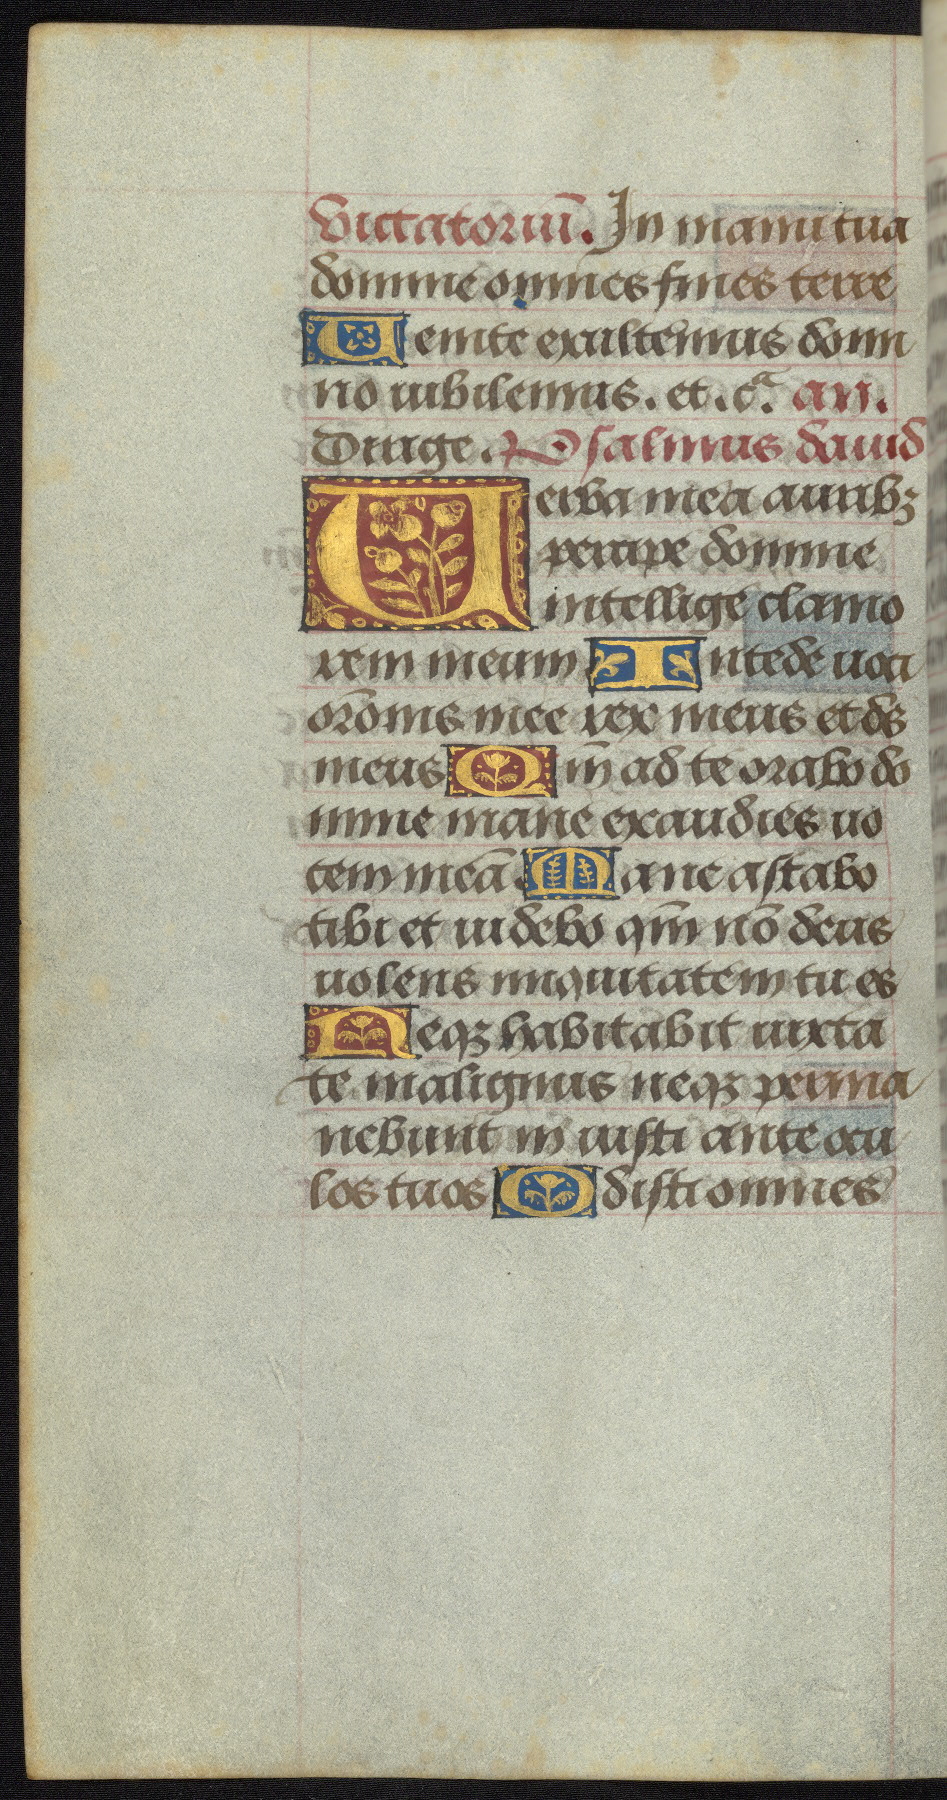 Victatoriū. In manu tua
domine omnes fines terre
Uenite exultemus domi
no iubilemus. et. cª. an.
Dirige. Psalmus dauid
Uerba mea aurib₃
percipe domine
intellige clamo
rem meum Intede uoci
orōnis mee rex meus et ds
meus Qm̄ ad te orabo do
mine mane exaudies uo
cem meā. Mane astabo
tibi et uidebo qm̄ nō deus
uolens iniquitatem tu es
Neqꝫ habitabit iuxta
te malignus neqꝫ perma
nebunt in iusti ante ocu
los tuos Odisti omnes